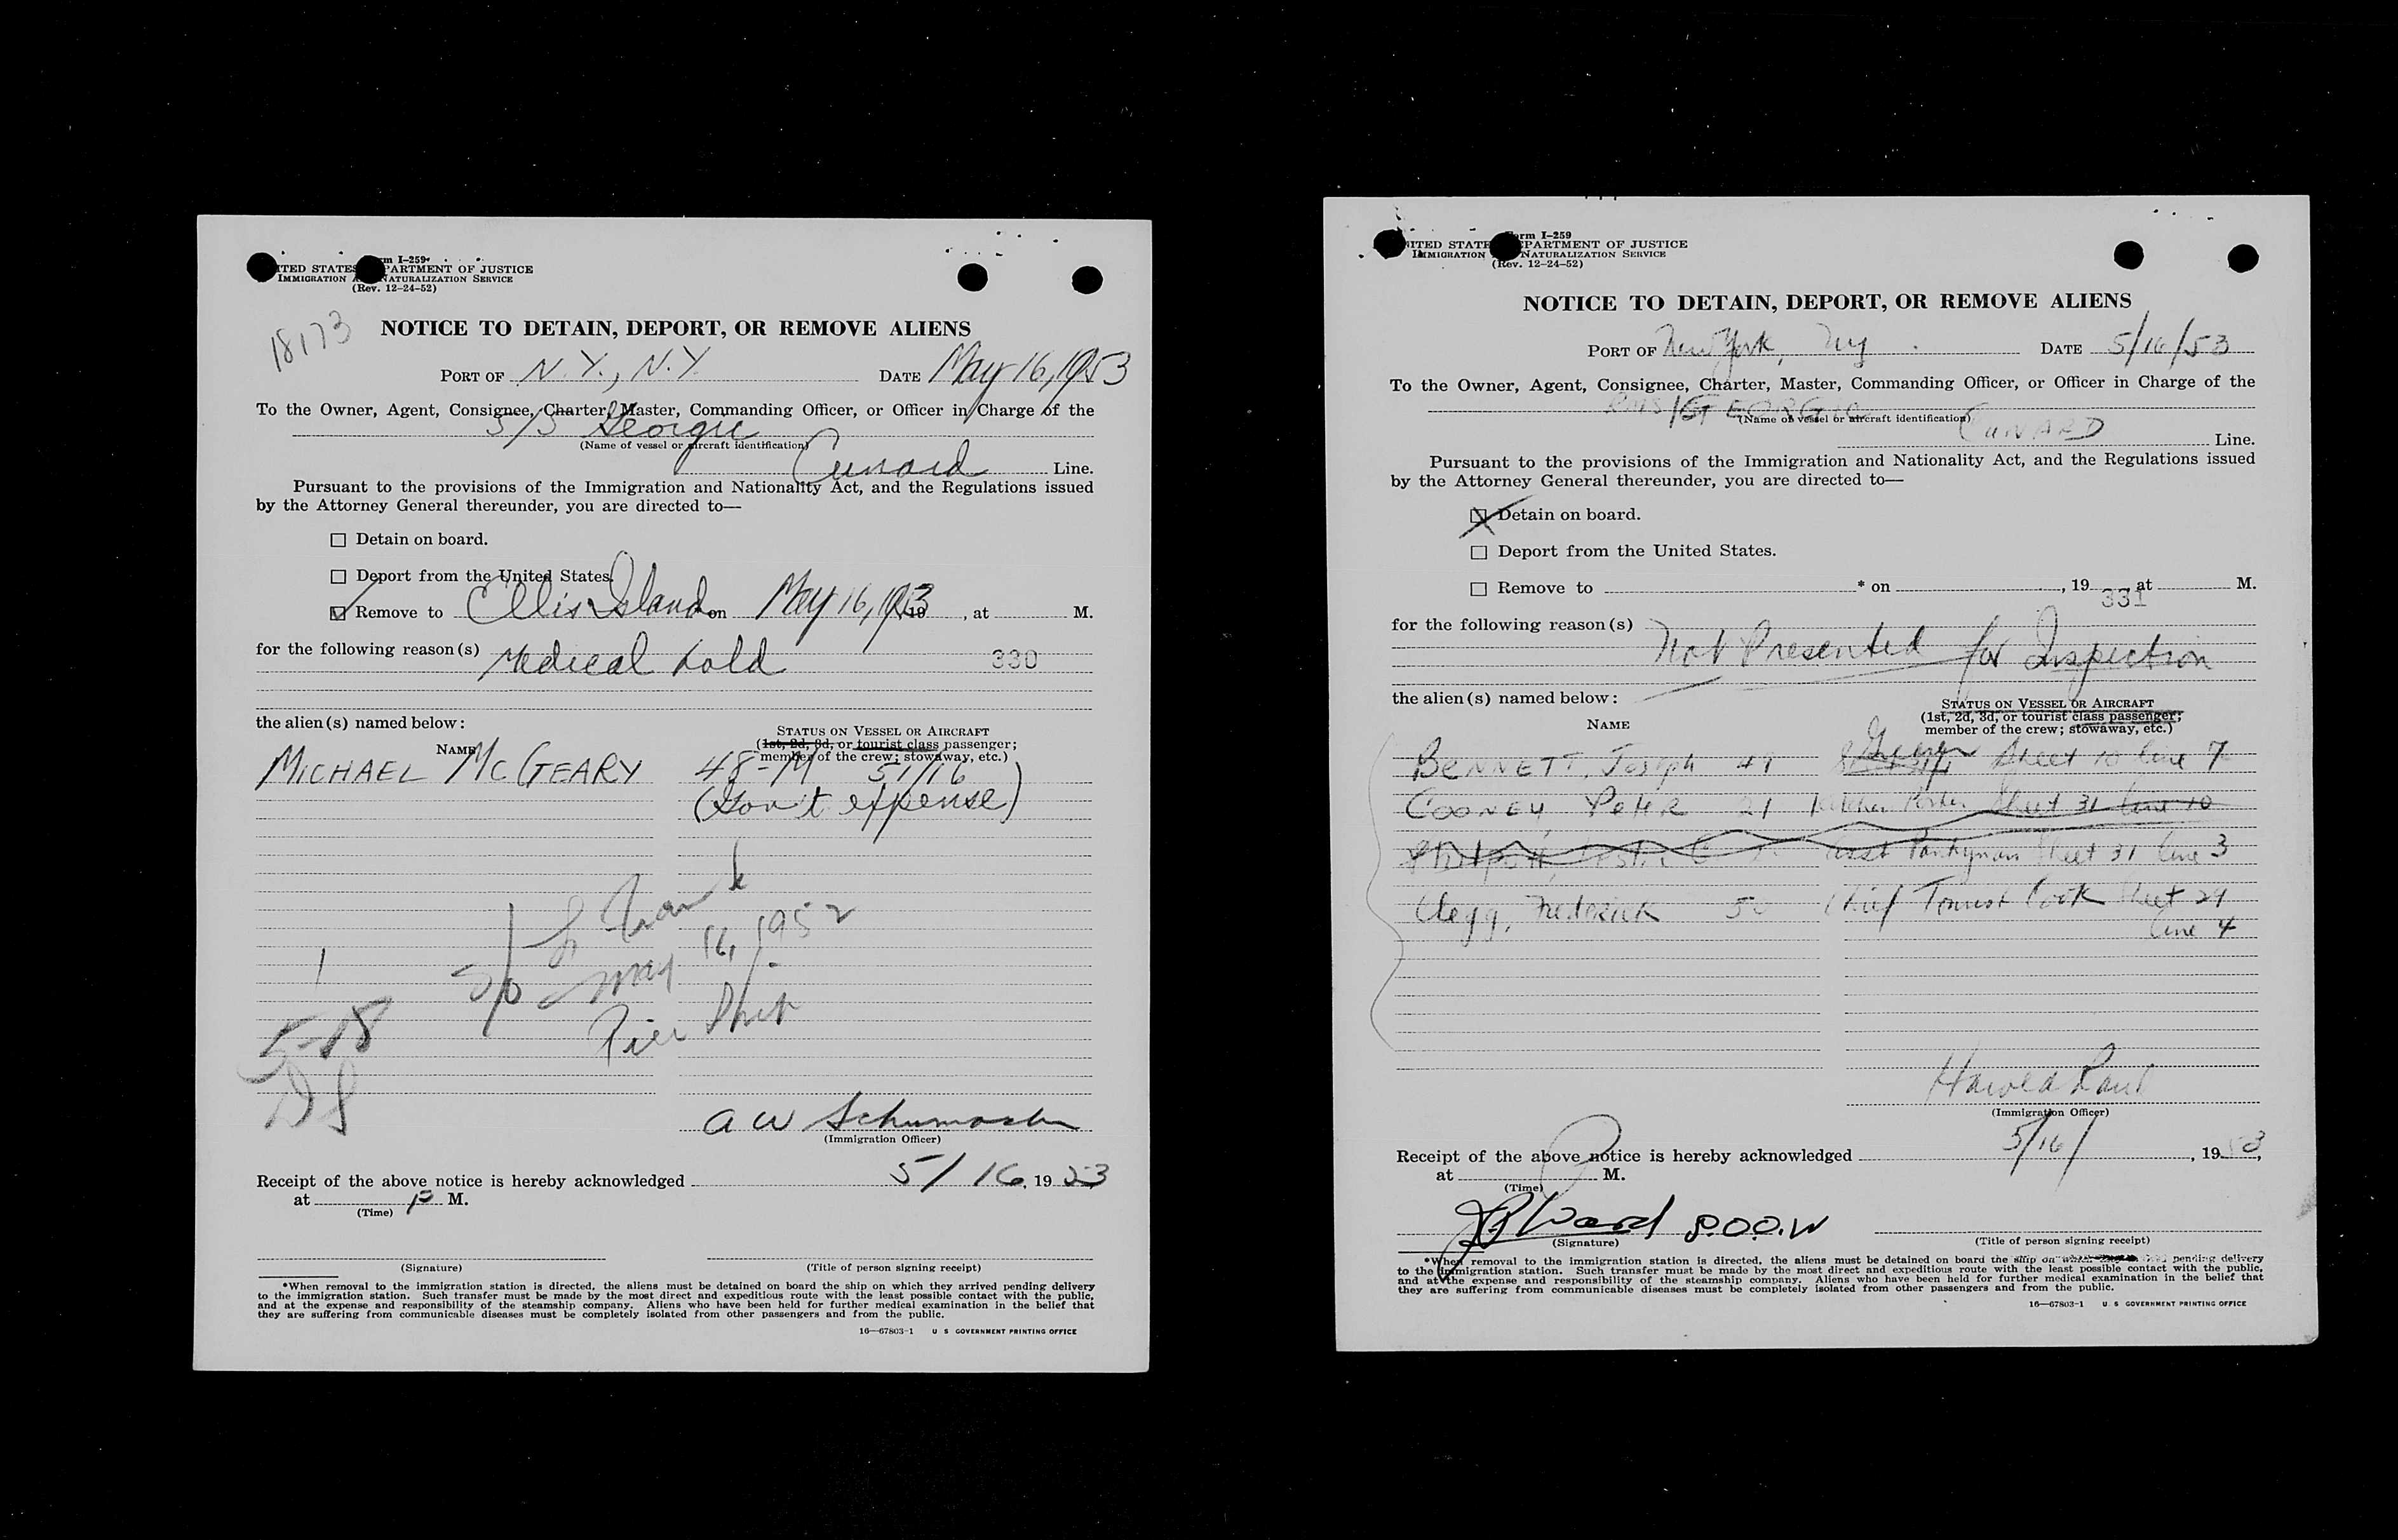 Form I-259
UNITED STATES DEPARTMENT OF JUSTICE
IMMIGRATION AND NATURALIZATION SERVICE
(Rev. 12-24-52)
18173
NOTICE TO DETAIN, DEPORT, OR REMOVE ALIENS
PORT OF N.Y., N.Y. DATE May 16, 1953
To the Owner, Agent, Consignee, Charter, Master, Commanding Officer, or Officer in Charge of the
S/S Georgic
(Name of vessel or aircraft identification)
Cunard Line.
Pursuant to the provisions of the Immigration and Nationality Act, and the Regulations issued
by the Attorney General thereunder, you are directed to—
☐ Detain on board.
☐ Deport from the United States.
☑ Remove to Ellis Island * on May 16, 1953, 19 , at M.
for the following reason(s) Medical hold 330
the alien(s) named below:
NAME
STATUS ON VESSEL OR AIRCRAFT
(1st, 2d, 3d, or tourist class passenger;
member of the crew; stowaway, etc.)
MICHAEL MCGEARY 48-M 51/16
(Gov't expense)
May 16, 1952
Pier
5-18
A W Schumacher
(Immigration Officer)
Receipt of the above notice is hereby acknowledged 5/16, 1953
at P M.
(Time)
(Signature) (Title of person signing receipt)
*When removal to the immigration station is directed, the aliens must be detained on board the ship on which they arrived pending delivery
to the immigration station. Such transfer must be made by the most direct and expeditious route with the least possible contact with the public,
and at the expense and responsibility of the steamship company. Aliens who have been held for further medical examination in the belief that
they are suffering from communicable diseases must be completely isolated from other passengers and from the public.
16—67803-1 U S GOVERNMENT PRINTING OFFICE
Form I-259
UNITED STATES DEPARTMENT OF JUSTICE
IMMIGRATION AND NATURALIZATION SERVICE
(Rev. 12-24-52)
NOTICE TO DETAIN, DEPORT, OR REMOVE ALIENS
PORT OF New York, NY DATE 5/16/53
To the Owner, Agent, Consignee, Charter, Master, Commanding Officer, or Officer in Charge of the
RMS GEORGIC
(Name of vessel or aircraft identification)
CUNARD Line.
Pursuant to the provisions of the Immigration and Nationality Act, and the Regulations issued
by the Attorney General thereunder, you are directed to—
☒ Detain on board.
☐ Deport from the United States.
☐ Remove to * on , 19 , at M.
331
for the following reason(s) Not Presented for Inspection
the alien(s) named below:
NAME
STATUS ON VESSEL OR AIRCRAFT
(1st, 2d, 3d, or tourist class passenger;
member of the crew; stowaway, etc.)
BENNETT, Joseph 47 Greaser Sheet 10 line 7
COONEY, Peter 21 Kitchen Porter Sheet 31 line 10
Asst Pantryman Sheet 31 line 3
Clegg, Frederick Chief Tourist Cook Sheet 29
line 4
Harold Paul
(Immigration Officer)
Receipt of the above notice is hereby acknowledged 5/16/, 1953,
at M.
(Time)
Ward
(Signature) (Title of person signing receipt)
*When removal to the immigration station is directed, the aliens must be detained on board the ship on which pending delivery
to the immigration station. Such transfer must be made by the most direct and expeditious route with the least possible contact with the public,
and at the expense and responsibility of the steamship company. Aliens who have been held for further medical examination in the belief that
they are suffering from communicable diseases must be completely isolated from other passengers and from the public.
16—67803-1 U S GOVERNMENT PRINTING OFFICE